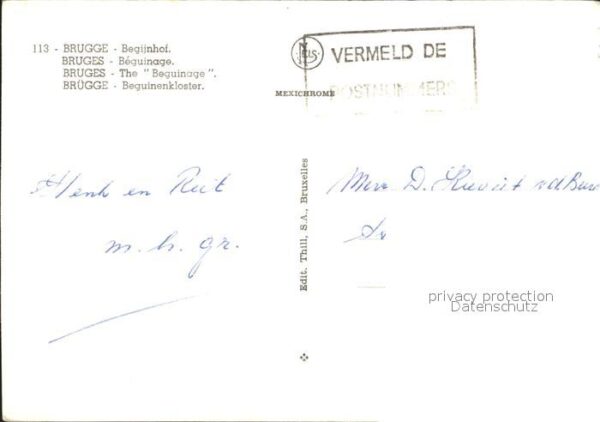 113 - BRUGGE - Begijnhof.
BRUGES - Béguinage.
BRUGES - The "Beguinage".
BRÜGGE - Beguinenkloster.
NELS
VERMELD DE
POSTNUMMERS
MEXICHROME
Henk en Riet
m. h. gr.
Edit. Thill, S.A., Bruxelles
Mevr. D.
privacy protection
Datenschutz